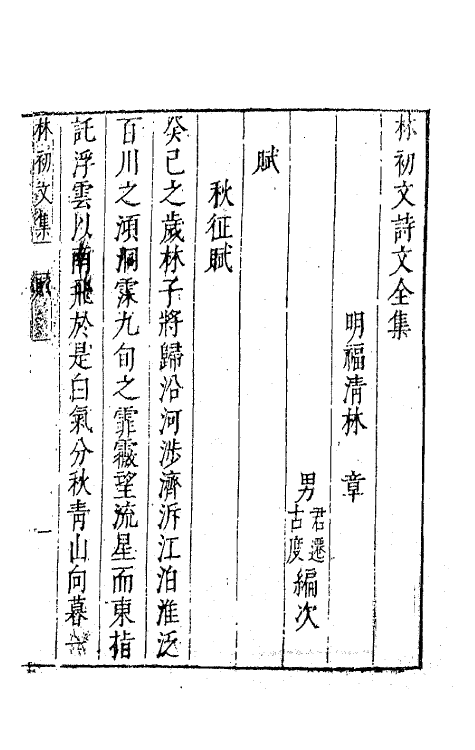 林初文詩文全集
明福清林 章
男君遷古度編次
賦
秋征賦
癸巳之歲林子將歸沿河涉濟泝江泊淮泛
百川之澒洞霂九旬之霏霰望流星而東指
託浮雲以南飛於是白氣分秋青山向暮
林初文集 賦 一